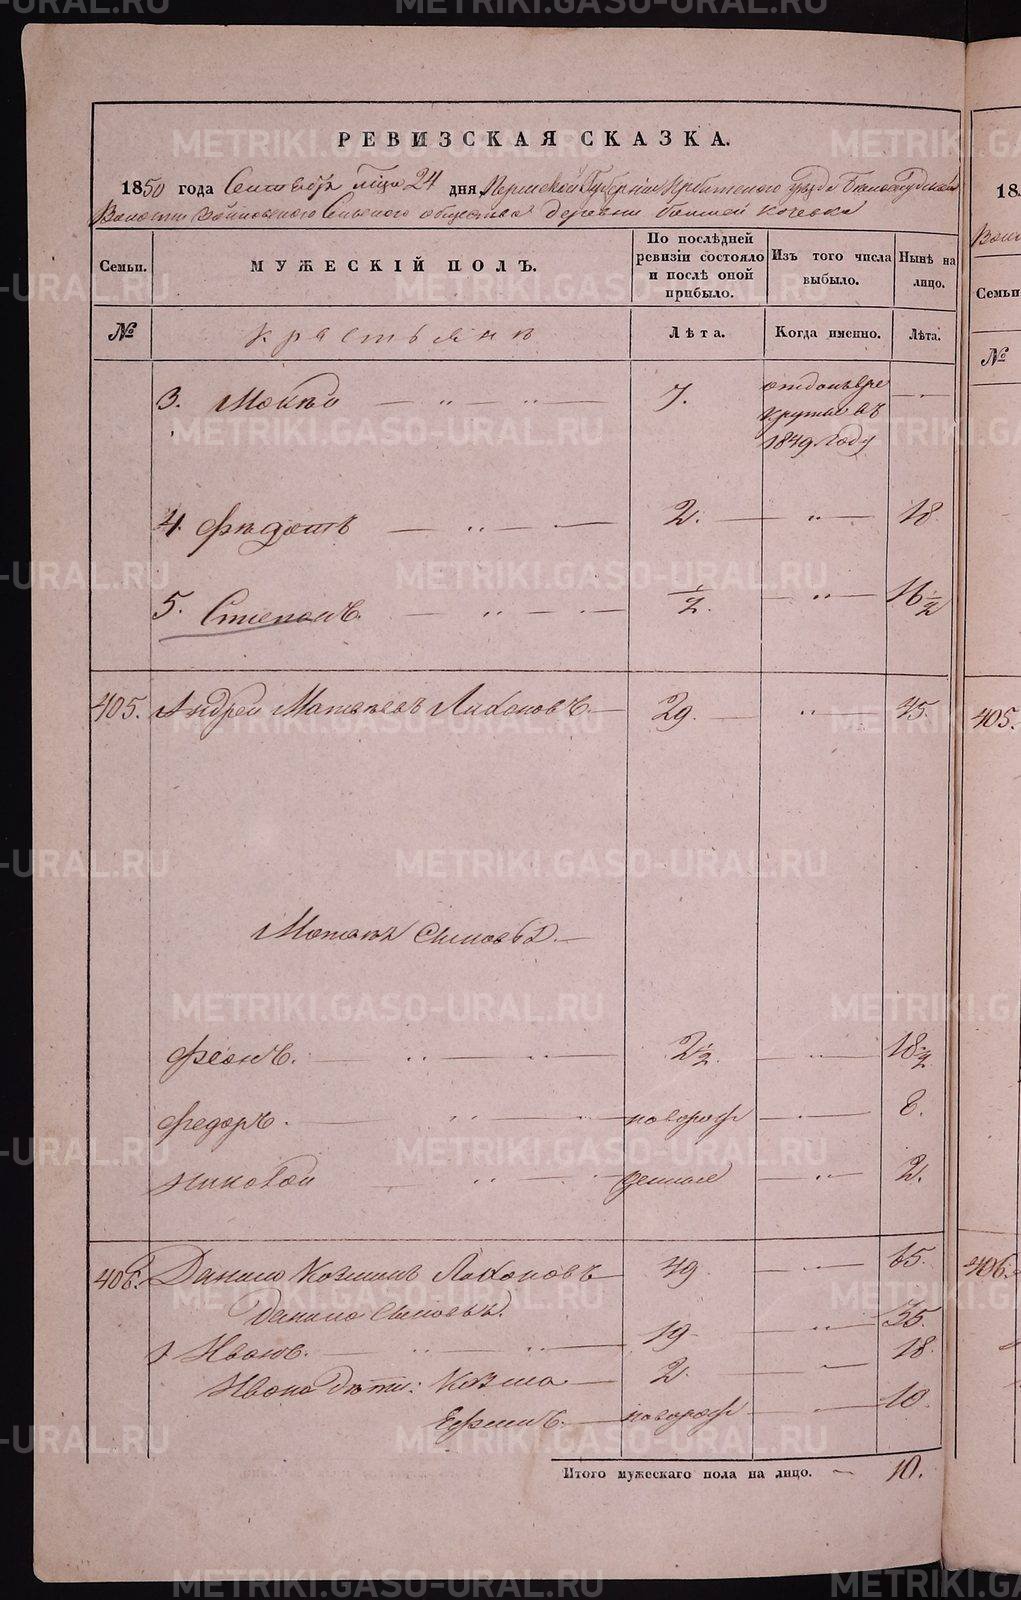 РЕВИЗСКАЯ СКАЗКА.
1850 года Сентября м 24 дня, Пермской Губернии Ирбитского уезда Белослудской
Волости Сельского общества деревни Кочевка
Семьи.
МУЖЕСКІЙ ПОЛЪ.
По послѣдней ревизіи состояло и послѣ оной прибыло.
Изъ того числа выбыло.
Нынѣ на лицо.
№
крестьянъ
Лѣта.
Когда именно.
Лѣта.
3. Мокѣй — „ — „ — 7.
отданъ в рекруты въ 1849 году
4. Фѣдотъ — „ — 2. — „ — 18
5. Степанъ. — „ — 1/2. — „ — 16 1/2
405. Андрей Матвѣевъ Лихановъ. — 29. — „ — 45.
сыновья. —
Феонъ. — „ — „ — 2 1/2. — „ — 18 1/2
Федоръ. — „ — новорож — „ — 8.
Николай — „ — денные — „ — 2.
406. Данило Козминъ Лихановъ — 49 — 65.
Данила Сыновья.
1 Иванъ. — „ — „ — 19 — „ — 35.
Ивана дѣти: Козма — 2. — 18.
Ефимъ. — новорож — 10.
Итого мужескаго пола на лицо. — 10.
18
Семьи
№
405.
406.
METRIKI.GASO-URAL.RU